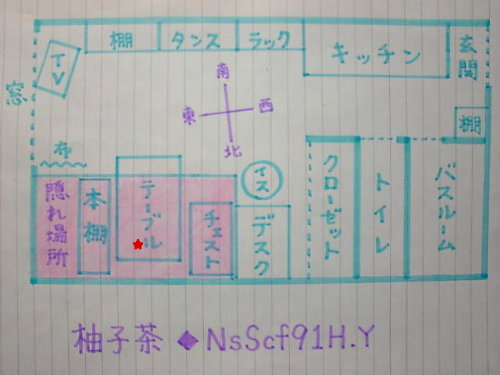 棚
タンス
ラック
キッチン
玄関
TV
窓
南
東
西
北
棚
布
隠れ場所
本棚
テーブル
チェスト
イス
デスク
クローゼット
トイレ
バスルーム
柚子茶◆NsScf91H.Y